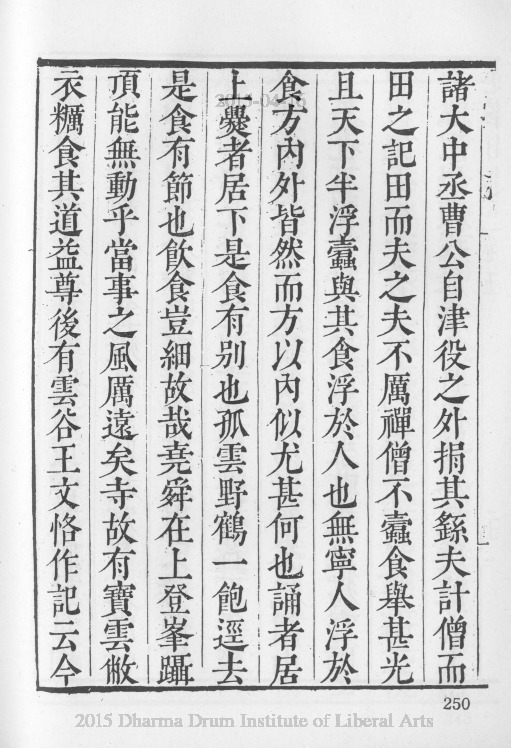 諸大中丞曹公自津役之外捐其繇夫計僧而
田之記田而夫之夫不厲禪僧不蠹食舉甚光
且天下半浮蠹與其食浮於人也無寧人浮於
食方內外皆然而方以內似尤甚何也誦者居
上爨者居下是食有别也孤雲野鶴一飽逕去
是食有節也飲食豈細故哉堯舜在上登峯躡
頂能無動乎當事之風厲遠矣寺故有寶雲敝
衣糲食其道益尊後有雲谷王文恪作記云今
250
2015 Dharma Drum Institute of Liberal Arts